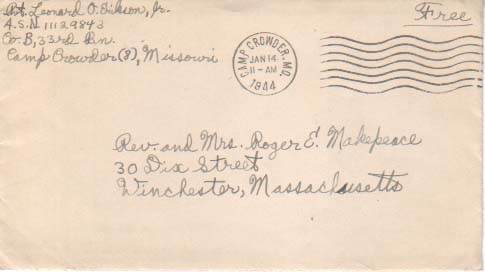 Pvt. Leonard O. Erikson, Jr.
A.S.N. 11129843
Co. B, 33rd Bn.
Camp Crowder (8), Missouri
Free
CAMP CROWDER, MO.
JAN 14
11-AM
1944
Rev. and Mrs. Roger E. Makepeace
30 Dix Street
Winchester, Massachusetts